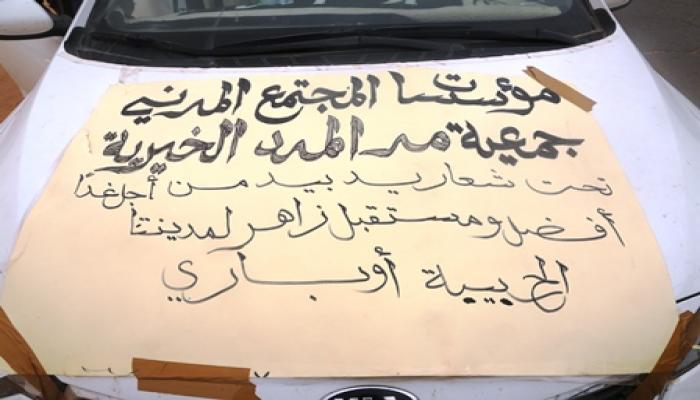 مؤسسات المجتمع المدني
جمعية مد المدد الخيرية
تحت شعار يد بيد من أجل غدا
أفضل ومستقبل زاهر لمدينتنا
الحبيبة أوباري